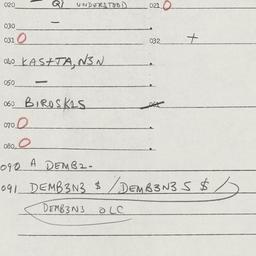 020 — Q) UNDERSTOOD 021 O
030 —
031 O 032 +
040 KASTTA, N3N
050 —
060 BIRDSKLS
070 O
080 O
090 A DEMB2-
091 DEMB3N3 $ / DEMB3N3 5 $ /
DEMB3N3 OLC